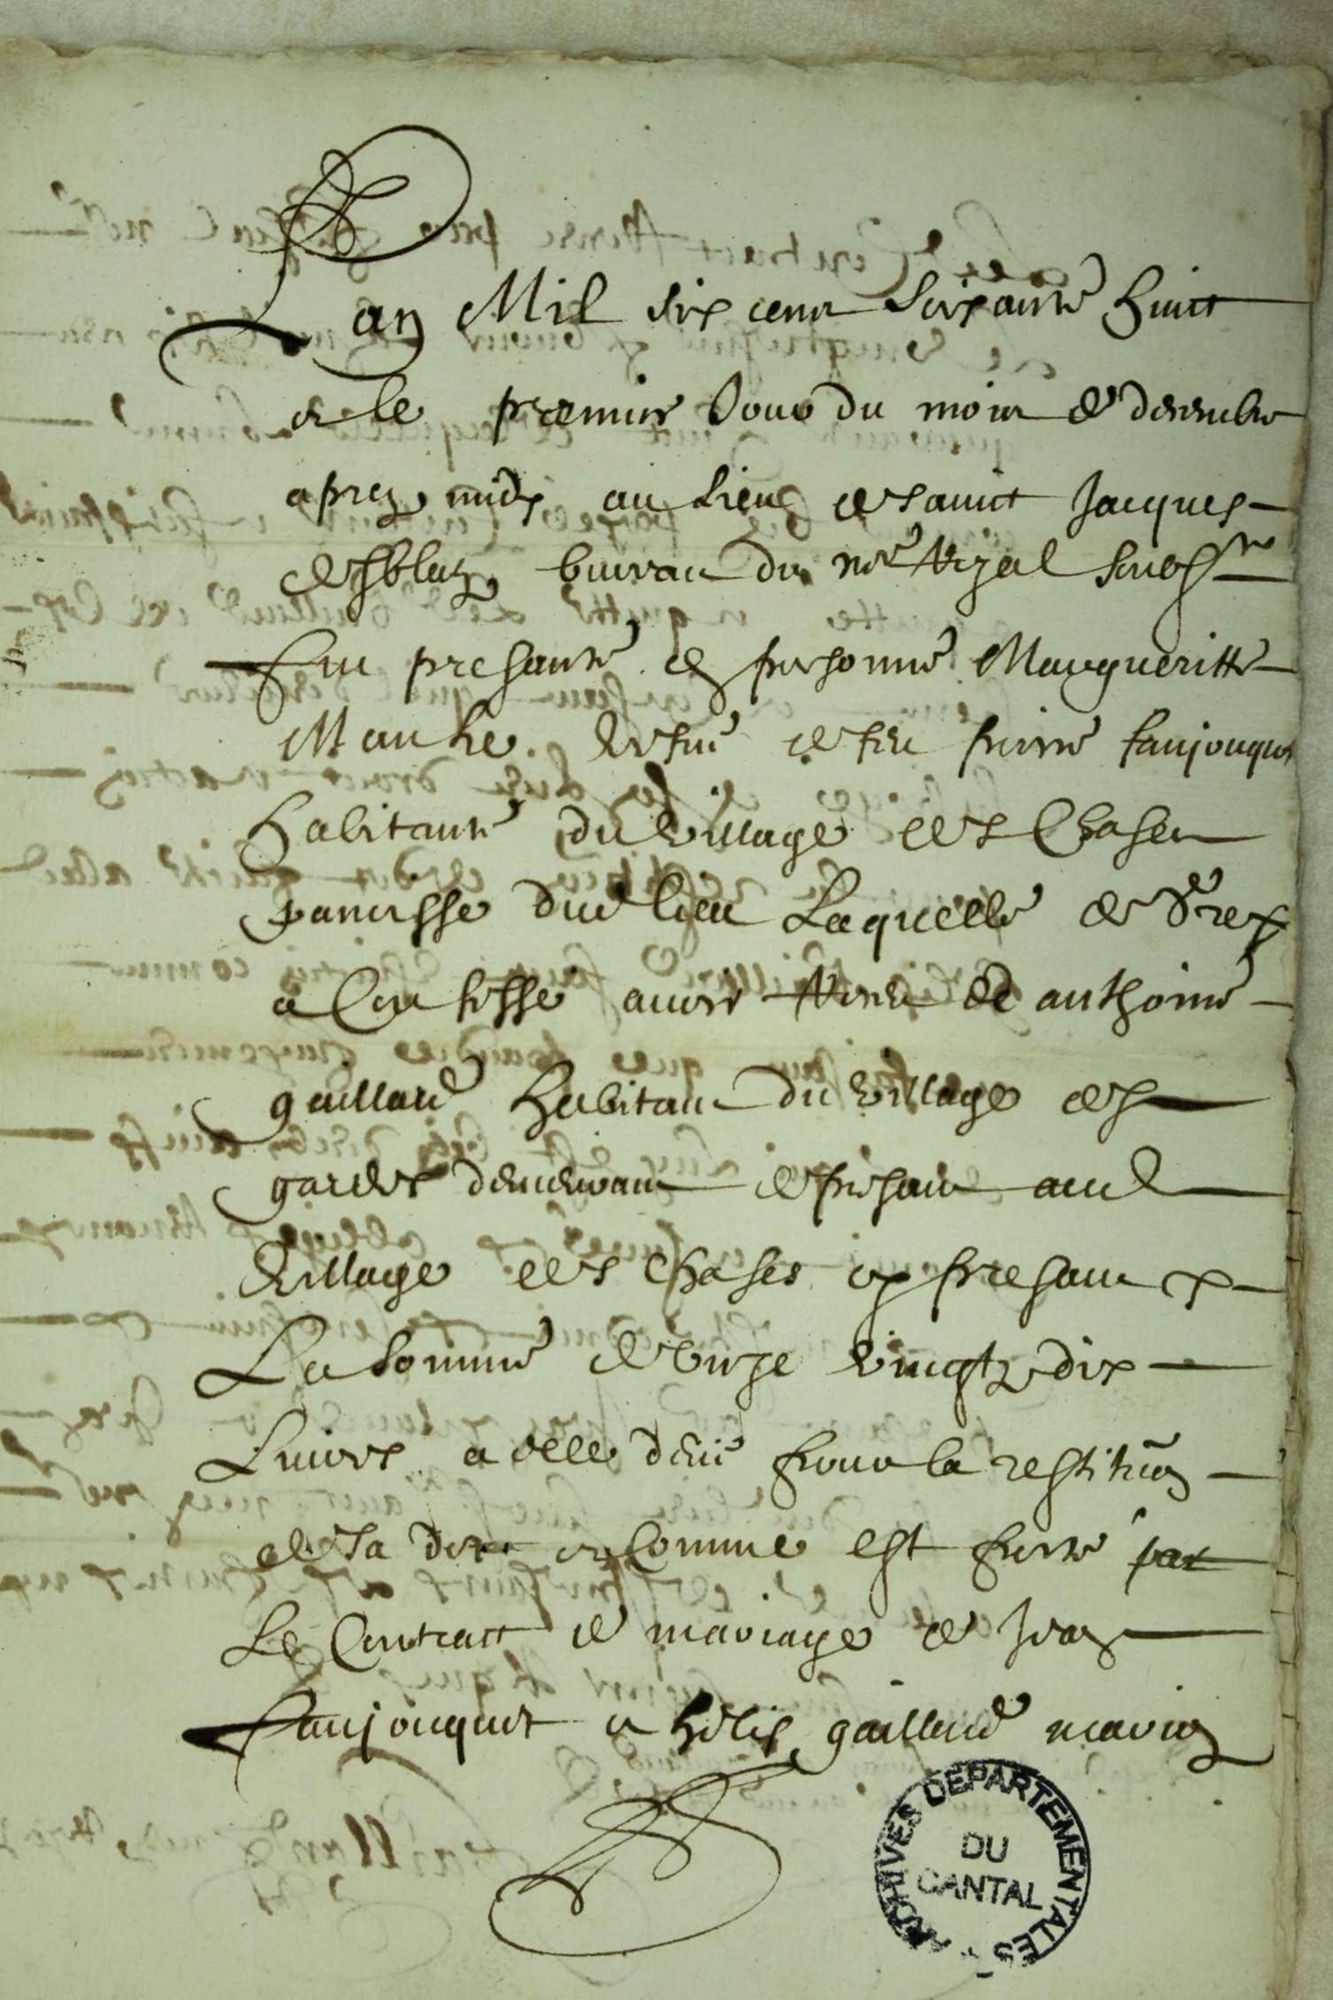 L an Mil six cent soixante huict
et le premier jour du mois de decembre
apres midy au lieu de sainct Jacques
desblatz buvant du no.re soubs.ne
Fut presante en personne Margueritte
Manhe vefue de feu pierre faujouques
habitante du village des Chases
parroisse dud lieu Laquelle de gre
a Confesse avoir receu de anthoine
gaillard habitant du village des
gardes demeurant de presant aud
village des chases icy presant
La somme de unze vingtz dix
Livres a elle deue pour la restituon
de sa dotte et comme est porte par
Le Contract de mariage de Jean
faujouques et helix gaillard maries
ARCHIVES DEPARTEMENTALES
DU
CANTAL